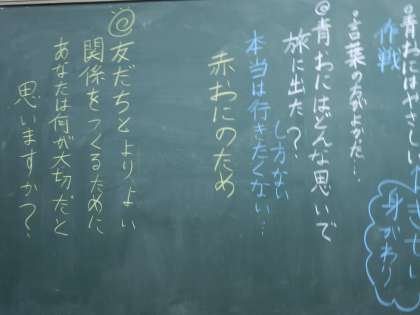 青おにはやさしい
ぎせい
身がわり
作戦
・言葉の
◎青おにはどんな思いで
旅に出た?
し方ない
本当は行きたくない…
赤おにのため
◎友だちとよりよい
関係をつくるために
あなたは何が大切だと
思いますか?